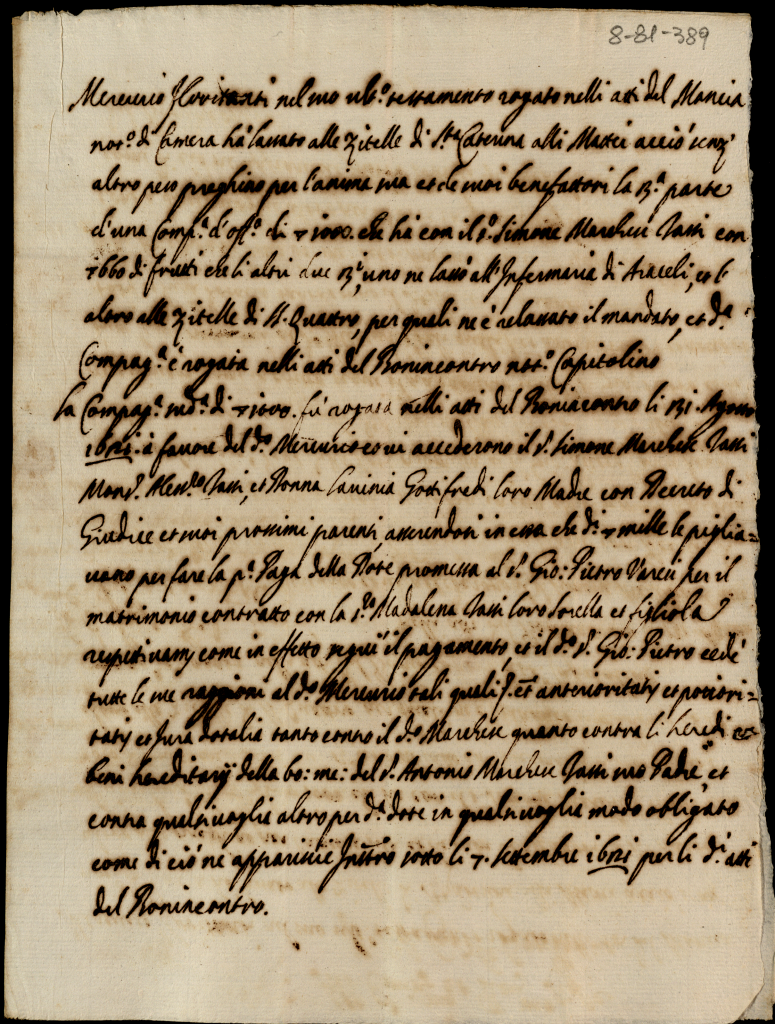 8-81-389
Mercurio Floritanti nel suo ult.o testamento rogato nelli atti del Mancia
not.o di Camera hà lassato alle zitelle di S.ta Caterina alli Mattei acciò senz'
altro peso preghino per l'anima sua et de suoi benefattori la 13.a parte
d'una Comp.a d'off.o di 1000. che hà con il s.r Simone Marchese Tassi con
660 di frutti che li altri due 13.i, uno ne lassò all'Infermaria di Araceli, et l'
altro alle zitelle di SS. Quattro, per quali ne è relassato il mandato, et d.a
Compag.a è rogata nelli atti del Bonincontro not.o Capitolino
la Compag.a sud.a di 1000. fù rogata nelli atti del Bonincontro li Agosto
1621. à favore del d.o Mercurio et vi accederono il s.r Simone Marchese Tassi
Mons.r Aless.ro Tassi, et Donna Lavinia Gottifredi loro Madre con Decreto di
Giudice et suoi prossimi parenti, asserendosi in essa che d.i mille le piglia=
vano per fare la p.a Paga della Dote promessa al s.r Gio: Pietro Varesi per il
matrimonio contratto con la s.ra Madalena Tassi loro sorella et figliola
respettivam.e come in effetto seguì il pagamento, et il d.o s.r Gio: Pietro cedè
tutte le sue raggioni al d.o Mercurio tali quali et anterioritatis et potiori=
tatis et Jura dotalia tanto contro il d.o Marchese quanto contra li heredi et
beni hereditarij della bo: me: del s.r Antonio Marchese Tassi suo Padre, et
contra qualsivoglia altro per d.a dote in qualsivoglia modo obligato
come di ciò ne apparisce Instro sotto li 7. settembre 1621 per li d.i atti
del Bonincontro.